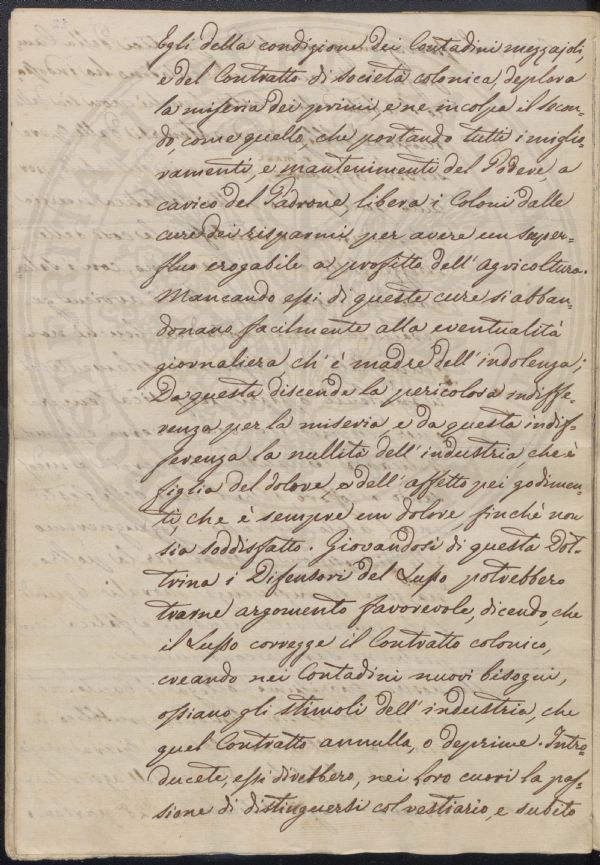 Egli della condizione dei Contadini mezzajoli,
e del Contratto di società colonica, deplora
la miseria dei primi, e ne incolpa il secon-
do, come quello, che portando tutti i miglio-
ramenti, e mantenimenti del Podere, a
carico del Padrone, libera i Coloni dalle
cure dei risparmi per avere un super-
fluo erogabile a profitto dell'Agricoltura.
Mancando essi di queste cure si abban-
donano facilmente alla eventualità
giornaliera, ch'è madre dell'indolenza;
Da questa discende la pericolosa indiffe-
renza per la miseria e da questa indif-
ferenza la nullità dell'industria, che è
figlia del dolore, e dell'affetto pei godimen-
ti, che è sempre un dolore, finchè non
sia soddisfatto. Giovandosi di questa Dot-
trina i Difensori del Lusso potrebbero
trarne argomento favorevole, dicendo, che
il Lusso corregge il Contratto colonico,
creando nei Contadini nuovi bisogni,
ossiano gli stimoli dell'industria, che
quel Contratto annulla, o deprime. Intro-
ducete, essi direbbero, nei loro cuori la pas-
sione di distinguersi col vestiario, e subito